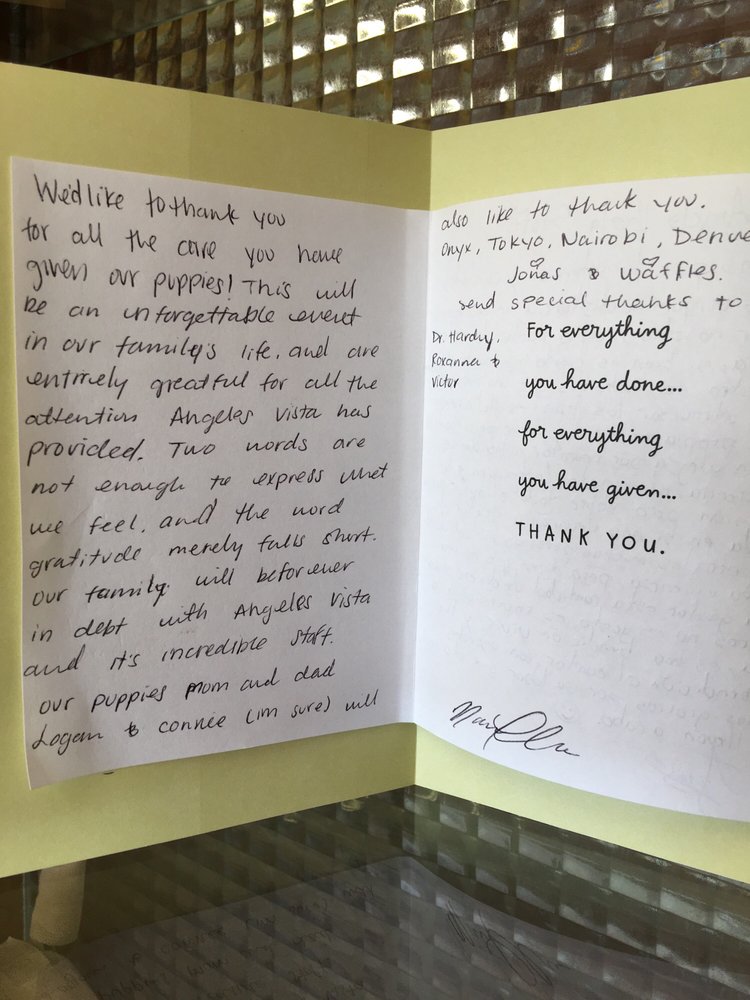 We'd like to thank you
for all the care you have
given our puppies! This will
be an unforgettable event
in our family's life, and are
entirely greatful for all the
attention Angeles Vista has
provided. Two words are
not enough to express what
we feel, and the word
gratitude merely falls short.
our family will beforever
in debt with Angeles Vista
and it's incredible staff.
our puppies mom and dad
Logan & connie (im sure) will
also like to thank you.
Onyx, Tokyo, Nairobi, Denve
Jonas & waffles.
send special thanks to
Dr. Hardy,
Roxanna &
Victor
For everything
you have done...
for everything
you have given...
THANK YOU.